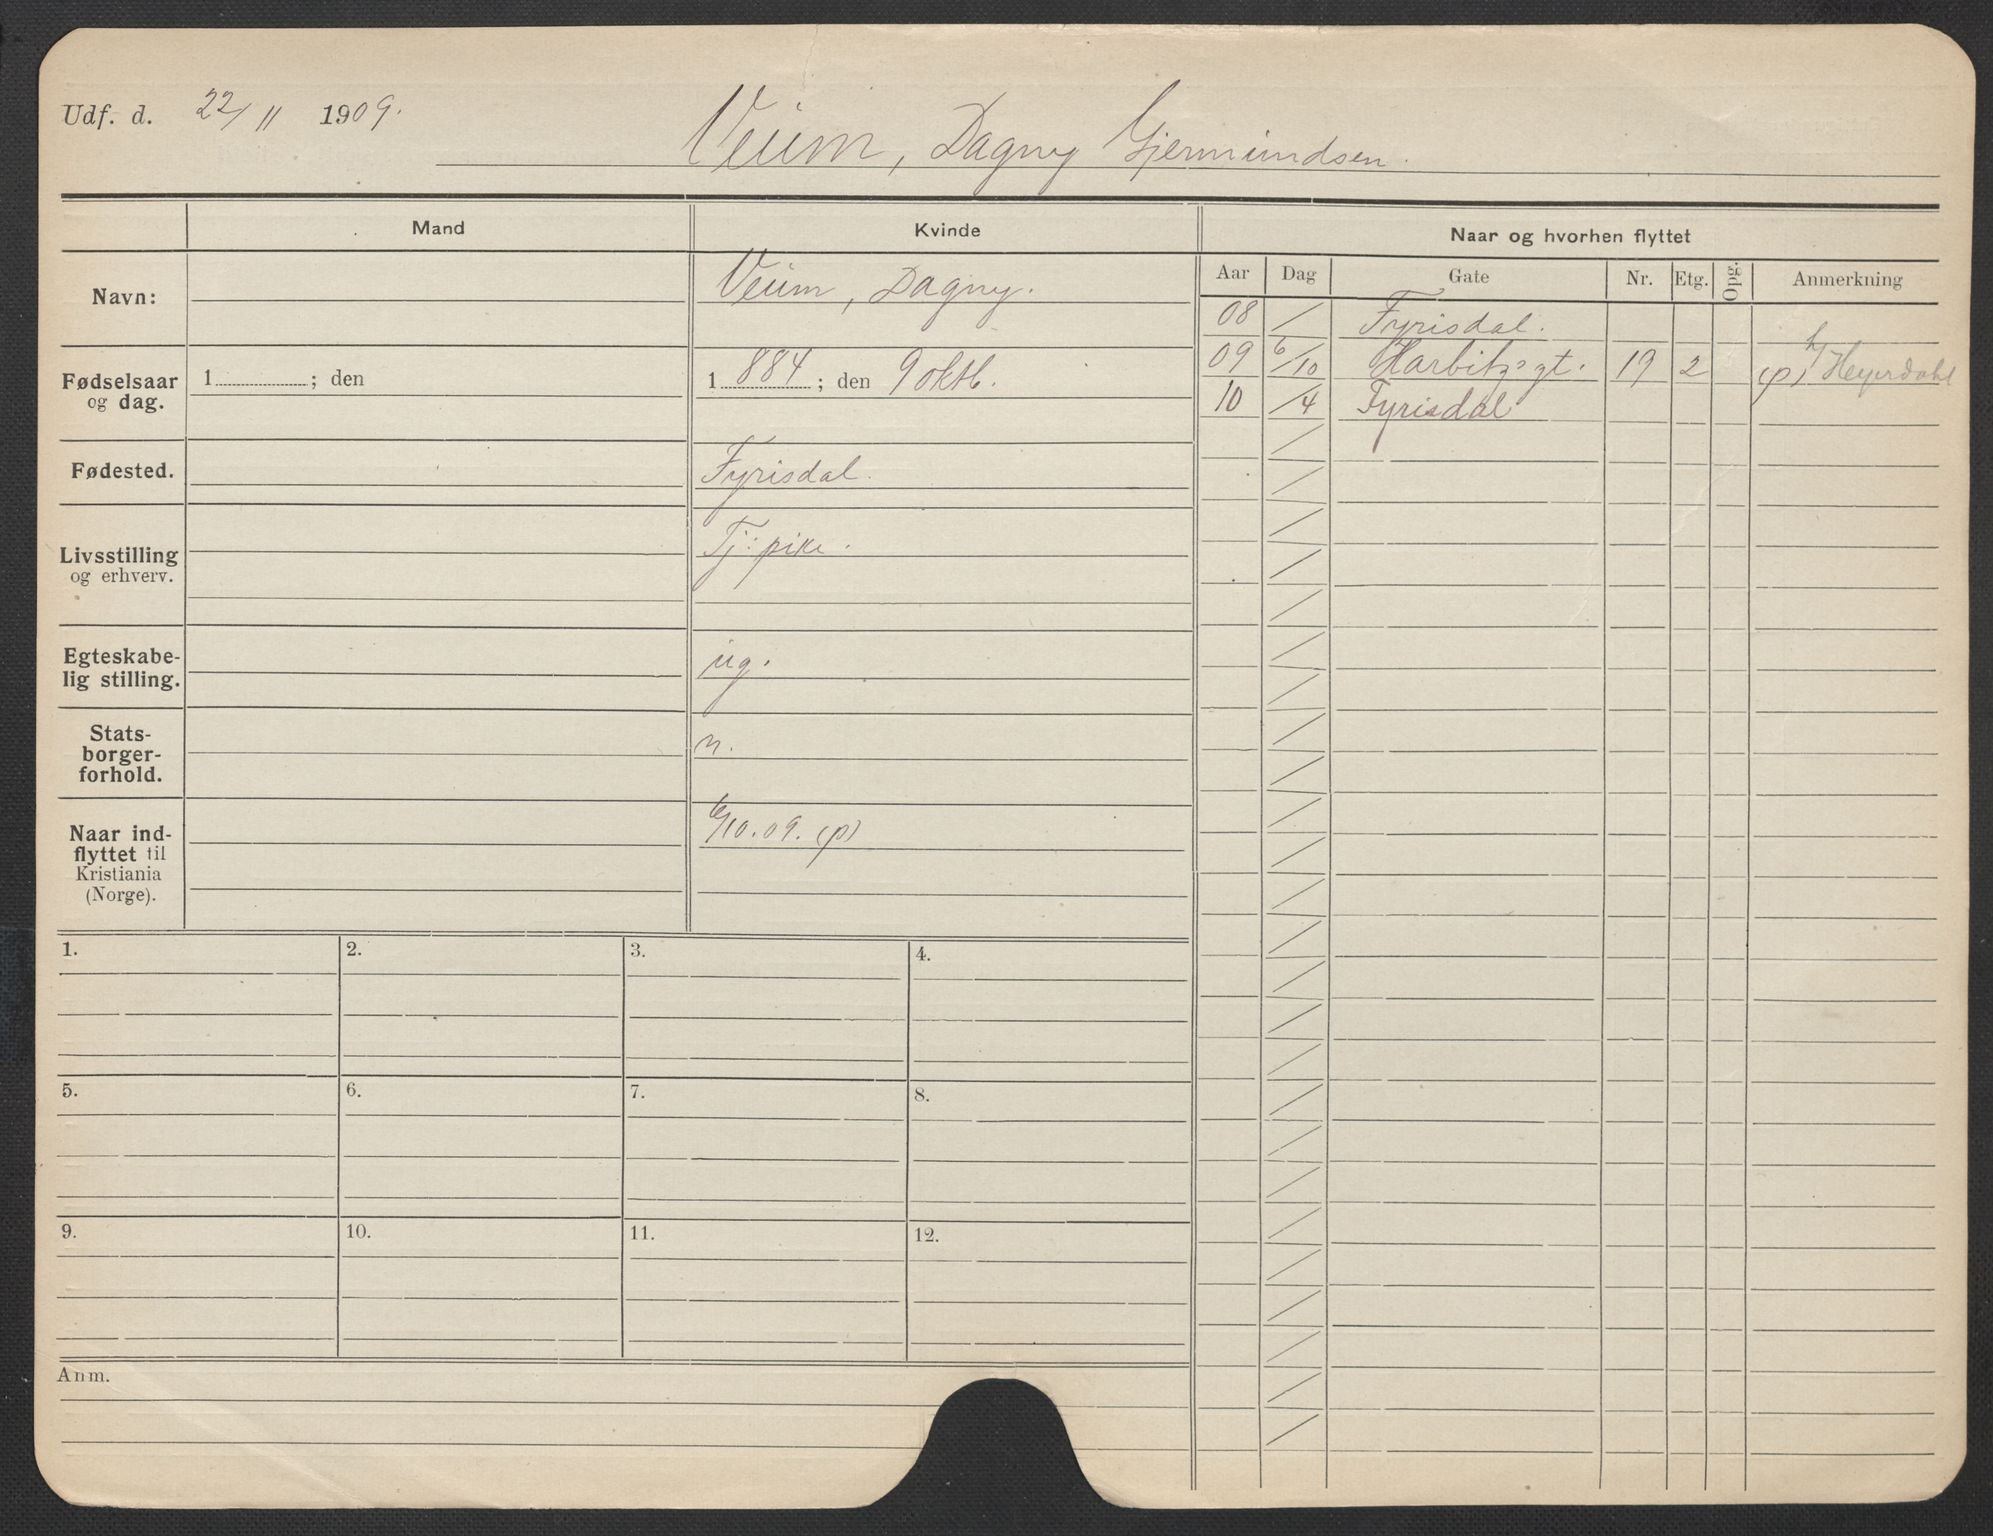 Udf. d. 22/11 1909.
Veum, Dagny Gjermundsen.
Mand
Kvinde
Naar og hvorhen flyttet
Aar Dag Gate Nr. Etg. Opg. Anmerkning
Navn:
Veum, Dagny.
Fødselsaar
og dag.
1 ; den
1 884 ; den 9 oktb.
Fødested.
Fyrisdal.
Livsstilling
og erhverv.
Tj: pike.
Egteskabe-
lig stilling.
ug.
Stats-
borger-
forhold.
n.
Naar ind-
flyttet til
Kristiania
(Norge).
6/10.09. (p)
08 / Fyrisdal.
09 6/10 Harbitz's gt. 19 2 (p) h/ Heyerdahl
10 /4 Fyrisdal
1. 2. 3. 4.
5. 6. 7. 8.
9. 10. 11. 12.
Anm.